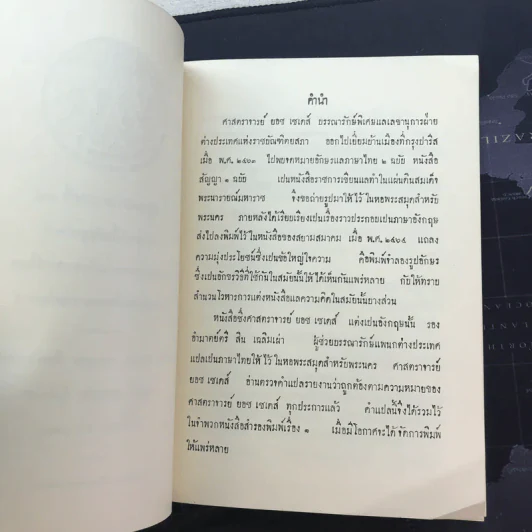 คำนำ
ศาสตราจารย์ ยอช เซเดส์ บรรณารักษ์พิเศษแลเลขานุการฝ่าย
ต่างประเทศแห่งราชบัณฑิตยสภา ออกไปเยี่ยมบ้านเมืองที่กรุงปารีส
เมื่อ พ.ศ. ๒๔๖๓ ไปพบจดหมายอักษรแลภาษาไทย ๒ ฉบับ หนังสือ
สัญญา ๑ ฉบับ เป็นหนังสือราชการเขียนแลทำในแผ่นดินสมเด็จ
พระนารายณ์มหาราช จึงขอถ่ายรูปมาให้ไว้ในหอพระสมุดสำหรับ
พระนคร ภายหลังได้เรียบเรียงเป็นเรื่องราวประกอบเป็นภาษาอังกฤษ
ส่งไปลงพิมพ์ไว้ในหนังสือของสยามสมาคม เมื่อ พ.ศ. ๒๔๖๔ แถลง
ความมุ่งประโยชน์ซึ่งเป็นข้อใหญ่ใจความ คือพิมพ์จำลองรูปอักษร
ซึ่งเป็นอักขรวิธีที่ใช้กันในสมัยนั้นให้ได้เห็นกันแพร่หลาย กับให้ทราบ
สำนวนโวหารการแต่งหนังสือแลความคิดในสมัยนั้นบางส่วน
หนังสือซึ่งศาสตราจารย์ ยอช เซเดส์ แต่งเป็นอังกฤษนั้น รอง
อำมาตย์ตรี สิน เฉลิมเผ่า ผู้ช่วยบรรณารักษ์แผนกต่างประเทศ
แปลเป็นภาษาไทยให้ไว้ในหอพระสมุดสำหรับพระนคร ศาสตราจารย์
ยอช เซเดส์ อ่านตรวจคำแปลรายงานว่าถูกต้องตามความหมายของ
ศาสตราจารย์ ยอช เซเดส์ ทุกประการแล้ว คำแปลนี้จึงได้รวมไว้
ในจำพวกหนังสือสำรองพิมพ์เรื่อง ๑ เมื่อมีโอกาศจะได้จัดการพิมพ์
ให้แพร่หลาย